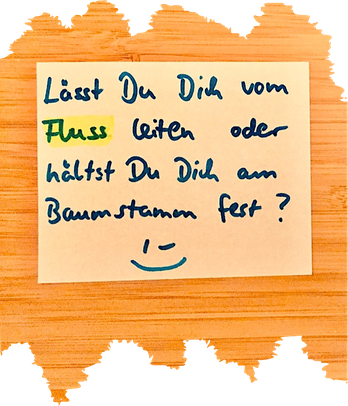 Lässt Du Dich vom
Fluss leiten oder
hältst Du Dich am
Baumstamm fest?